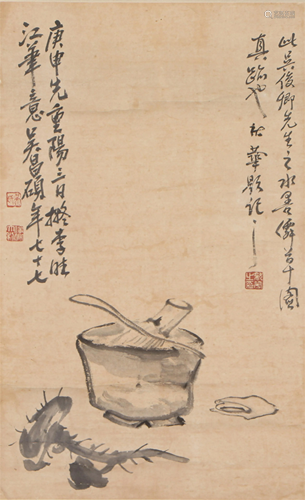 此吳俊卿先生之水墨僊首十圖
真跡也
華題記之
庚申先重陽三日擬李晴
江筆意吳昌碩年七十七